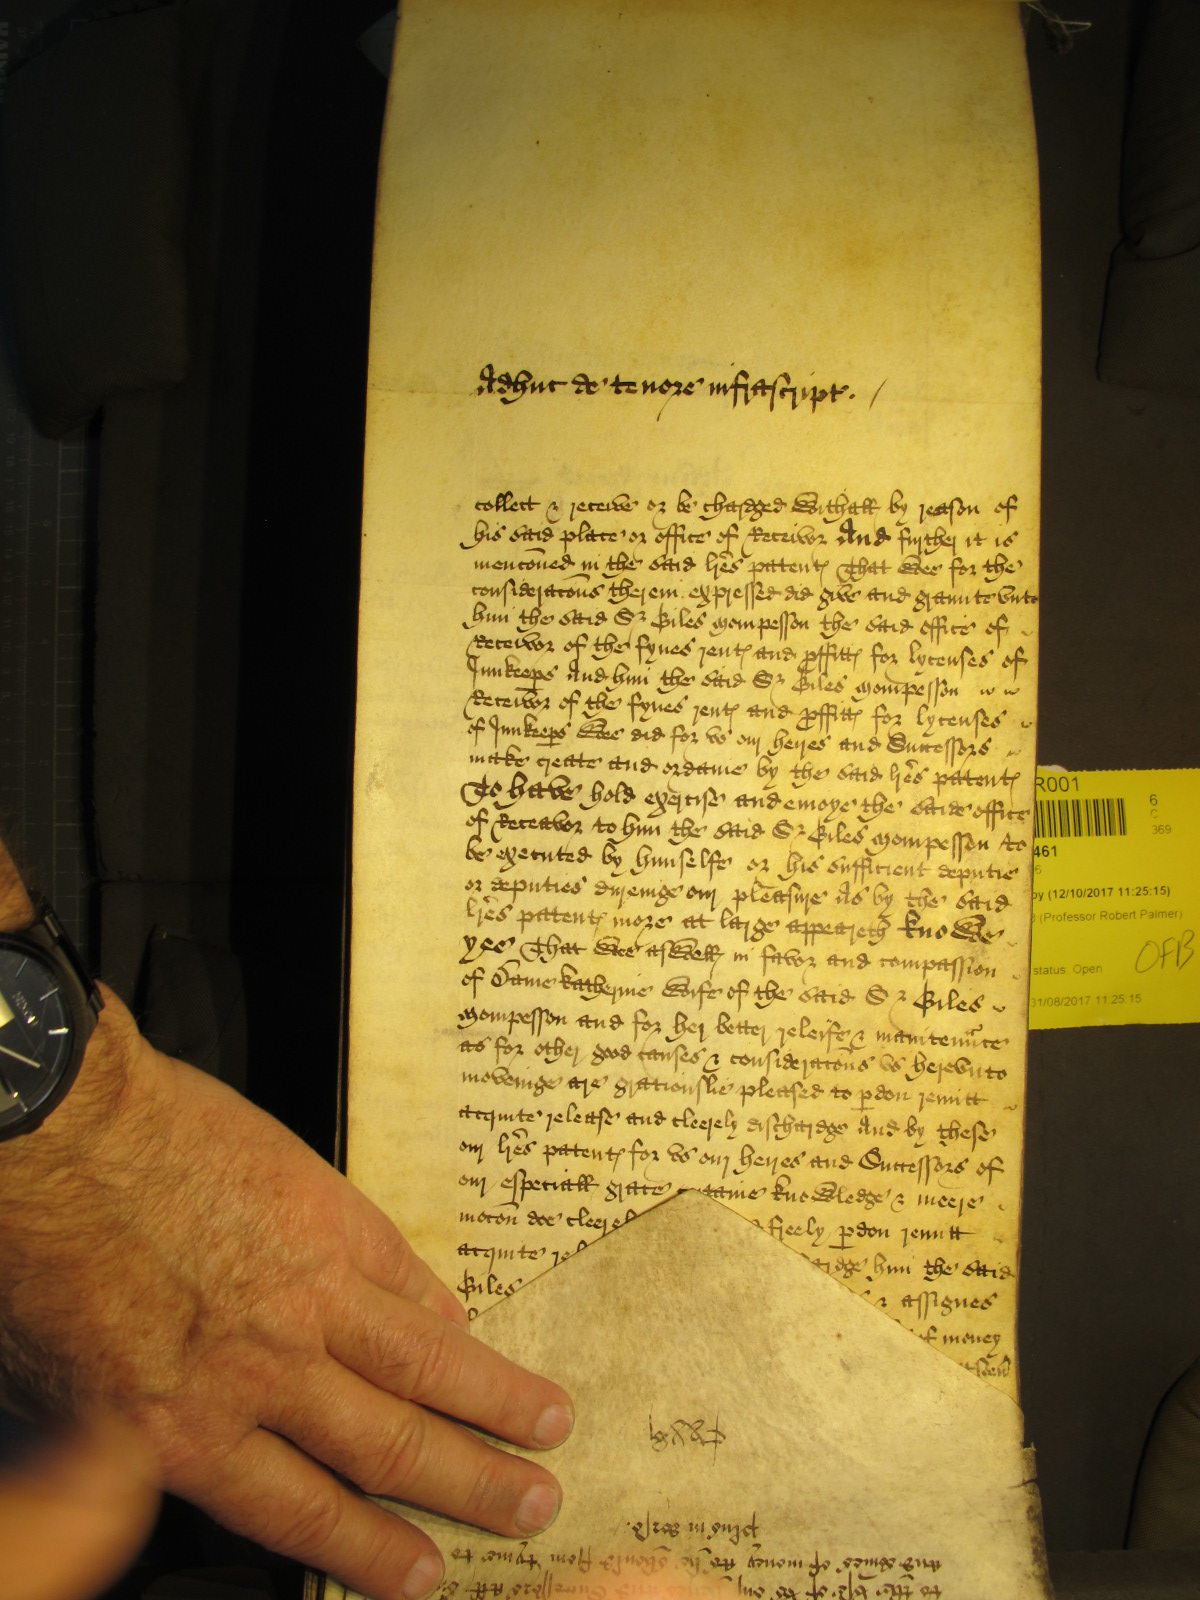 Adhuc de tenore infrascript.
collect & receive or be chardged Withall by reason of
his said place or office of Receivor And further it is
mencōned in the said lrēs patent That Wee for the
consideracōns therein expressed did give and graunte vnto
him the said Sr Giles Mompesson the said office of
Receivor of the fynes rent and pffitt for lycenses of
Innkeeps And him the said Sr Giles Mompesson
Receivor of the fynes rent and pffitt for lycenses
of Innkeeps Wee did for vs our heires and Successors
make create and ordaine by the said lrēs patent
To have hold exercise and enioye the saide office
of Receavor to him the said Sr Giles Mompesson to
be executed by himselfe or his sufficient deputie
or deputies dureinge our pleasure As by the said
lrēs patent more at large appeareth KnoWe
yee That Wee asWell in favor and compassion
of Dame Katherine Wife of the said Sr Giles
Mompesson and for her better releife & maintennce
as for other good causes & consideracōns vs herevnto
moveinge are graciouslie pleased to pdon remitt
acquite release and cleerely dischardge And by these
our lrēs patent for vs our heires and Successors of
our especiall grace taine knoWledge & meere
mocōn doe cleerel freely pdon remitt
acquite rel ardge him the said
Giles & assignes
of money
R001
6
C
369
461
6
by (12/10/2017 11:25:15)
(Professor Robert Palmer)
status: Open
OFB
31/08/2017 11:25:15